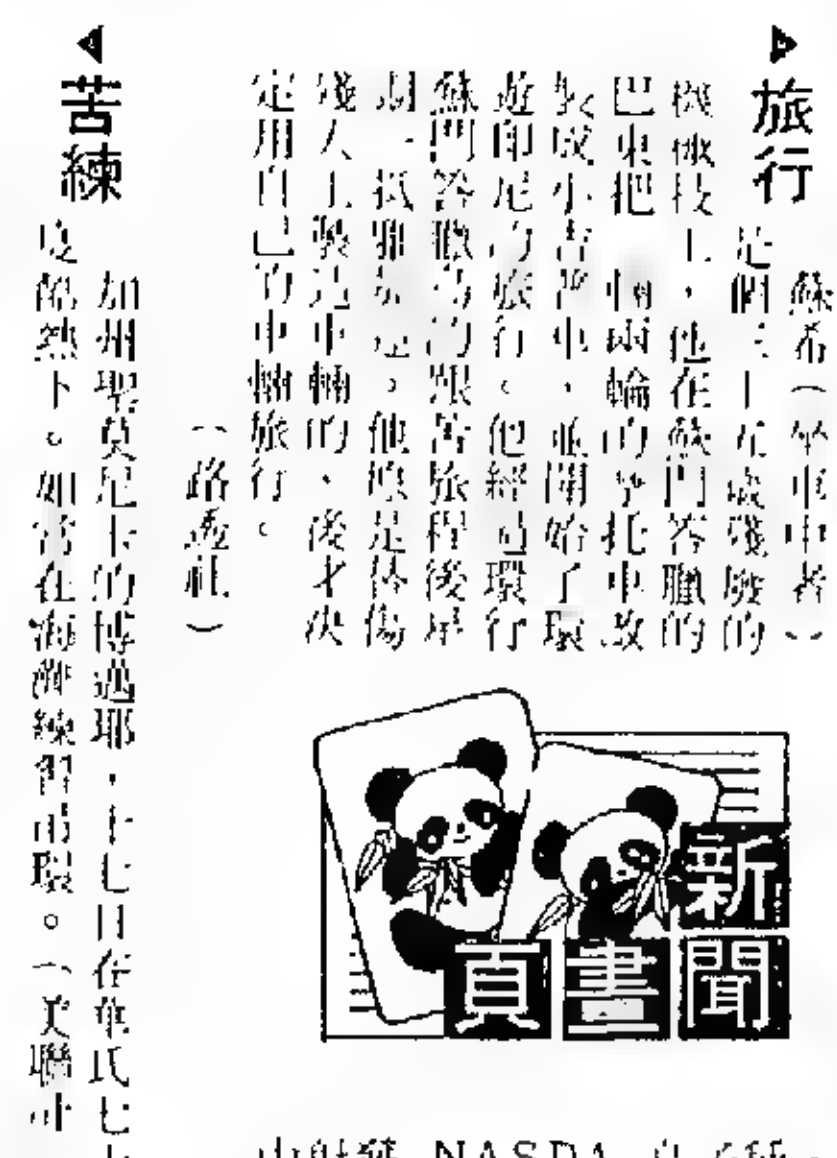 旅行
蘇希（坐車中者）
是個三十五歲殘廢的
機械技工，他在蘇門答臘的
巴東把一輛兩輪的摩托車改
裝成小書齋車，並開始了環
遊印尼的旅行。他經過環行
蘇門答臘島的艱苦旅程後早
期一抵雅加達。他原是替傷
殘人士製造車輛的，後才決
定用自己的車輛旅行。
（路透社）
新聞
畫
頁
苦練
加州聖莫尼卡的博邁耶，十七日在華氏七十
度酷熱下。如常在海灘練習吊環。（美聯社
NASDA